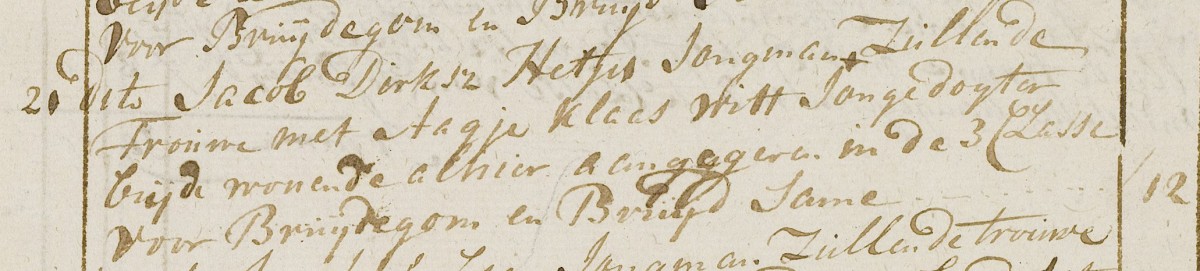 voor Bruijdegom en Bruijd
21 dito Jacob Dirksz Hetjes Jongman Zullende
Trouwe met Aagje Klaas Witt Jongedogter
beijde wonende alhier aangegeven in de 3 Classe
voor Bruijdegom en Bruijd Same 12
Jongman Zullende trouwe